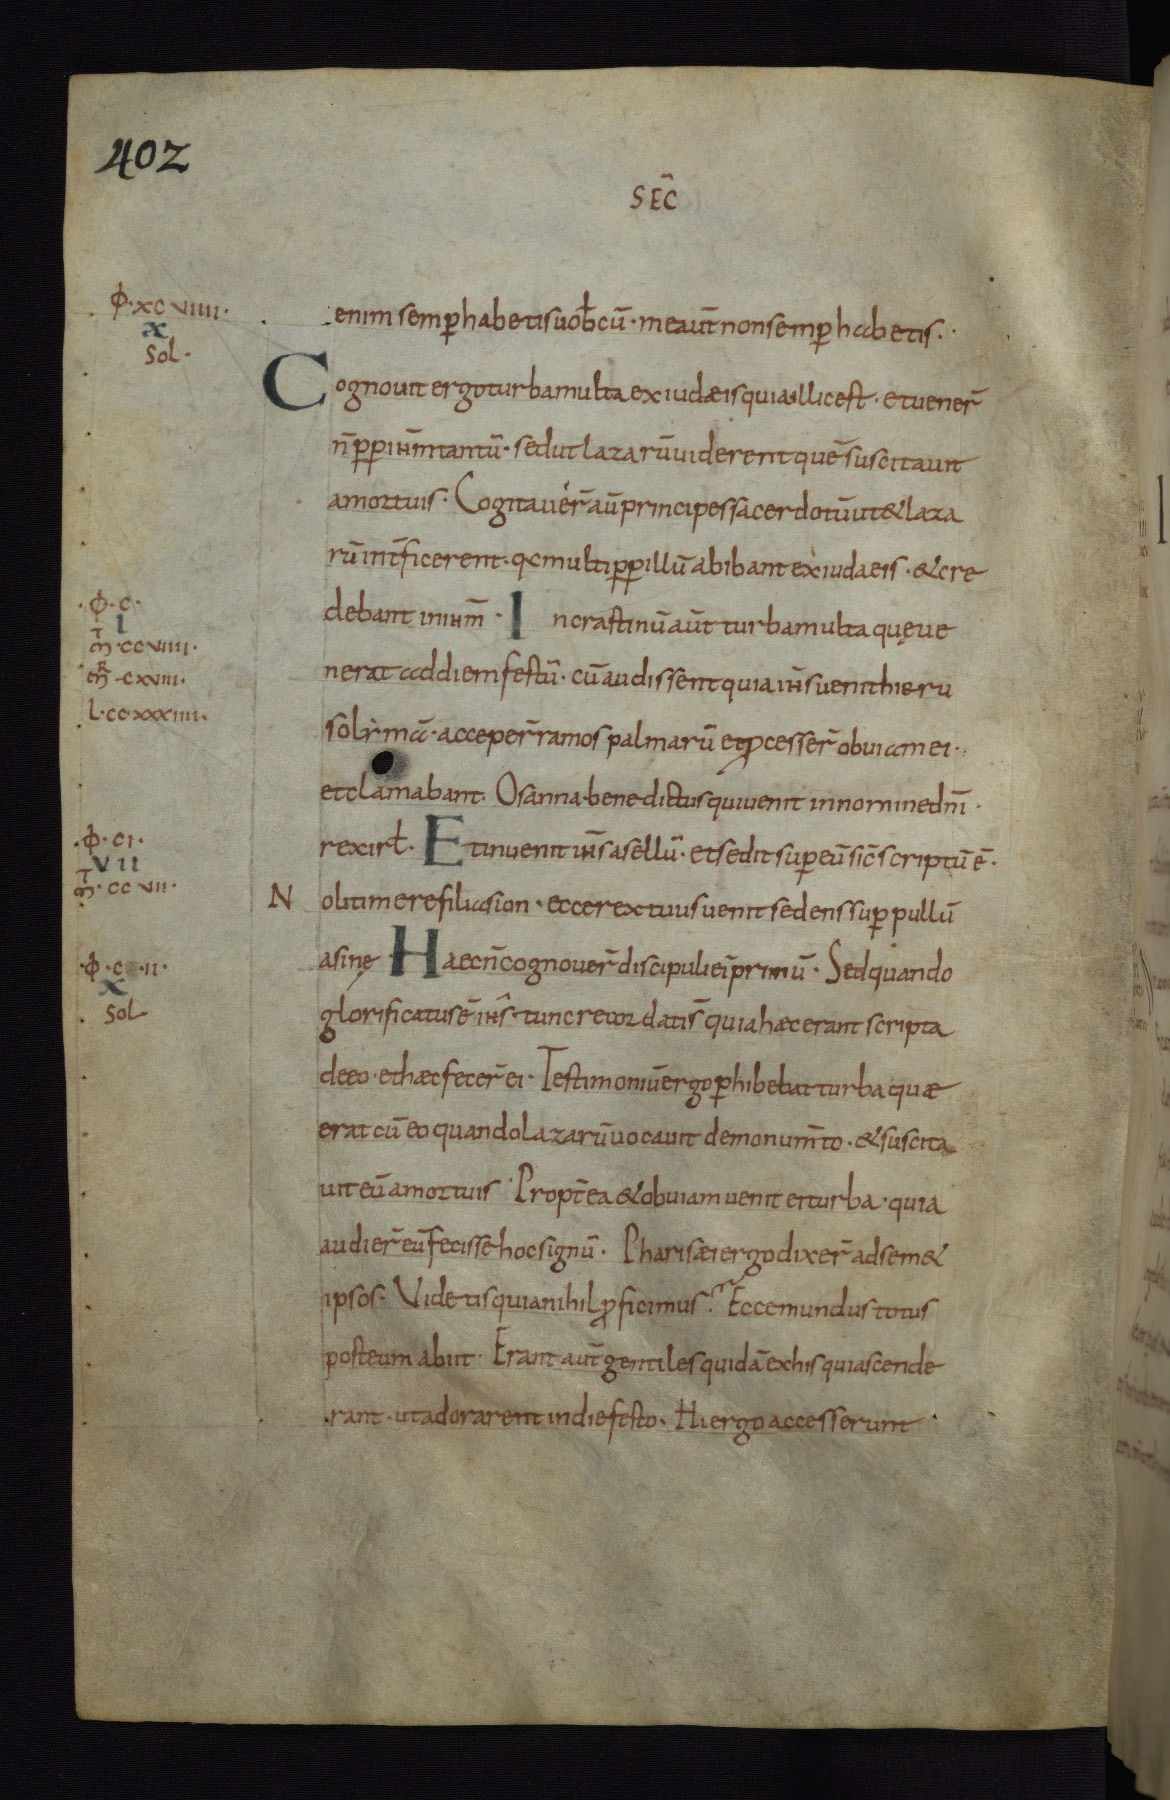 402
SEC̄
ϕ·xcviiii·
x
Sol·
enim semp̄ habetis uob̄cū· me aut̄ non semp̄ habetis·
Cognouit ergo turba multa ex iudæis quia illic est· et uener̄
n̄ pp̄ ihm̄ tantū· sed ut lazarū uiderent quē suscitauit
a mortuis· Cogitauer̄ aū principes sacerdotū ut & laza
rū int̄ficerent· qc multi pp̄ illū abibant ex iudaeis· & cre
debant in ihm̄· In crastinū aūt turba multa quę ue
nerat ad diem festū· cū audissent quia ihs̄ uenit hieru
solimā· acceper̄ ramos palmarū et processer̄ obuiam ei·
et clamabant· Osanna· benedictus qui uenit in nomine dn̄i·
rex isrl̄· Et inuenit ihs̄ asellū· et sedit super eū sic̄ scriptū ē·
Noli timere filia sion· ecce rex tuus uenit sedens sup̄ pullū
asinę· Haec n̄ cognouer̄ discipuli ei̅ primū· Sed quando
glorificatus ē ihs̄· tunc recordati s̄ quia haec erant scripta
de eo· et haec fecer̄ ei· Testimoniū ergo p̄hibebat turba quæ
erat cū eo quando lazarū uocauit de monum̄to· & suscita
uit eū a mortuis· Propt̄ea & obuiam uenit ei turba· quia
audier̄ eū fecisse hoc signū· Pharisæi ergo dixer̄ ad sem&
ipsos· Videtis quia nihil proficimus· Ecce mundus totus
post eum abiit· Erant aūt gentiles quidā ex his qui ascende
rant· ut adorarent in die festo· Hi ergo accesserunt
ϕ·c·
I
m̄·ccviiii·
m̄R·cxviii·
L·ccxxxiiii·
ϕ·ci·
VII
m̄·ccvii·
ϕ·c ii·
X
Sol